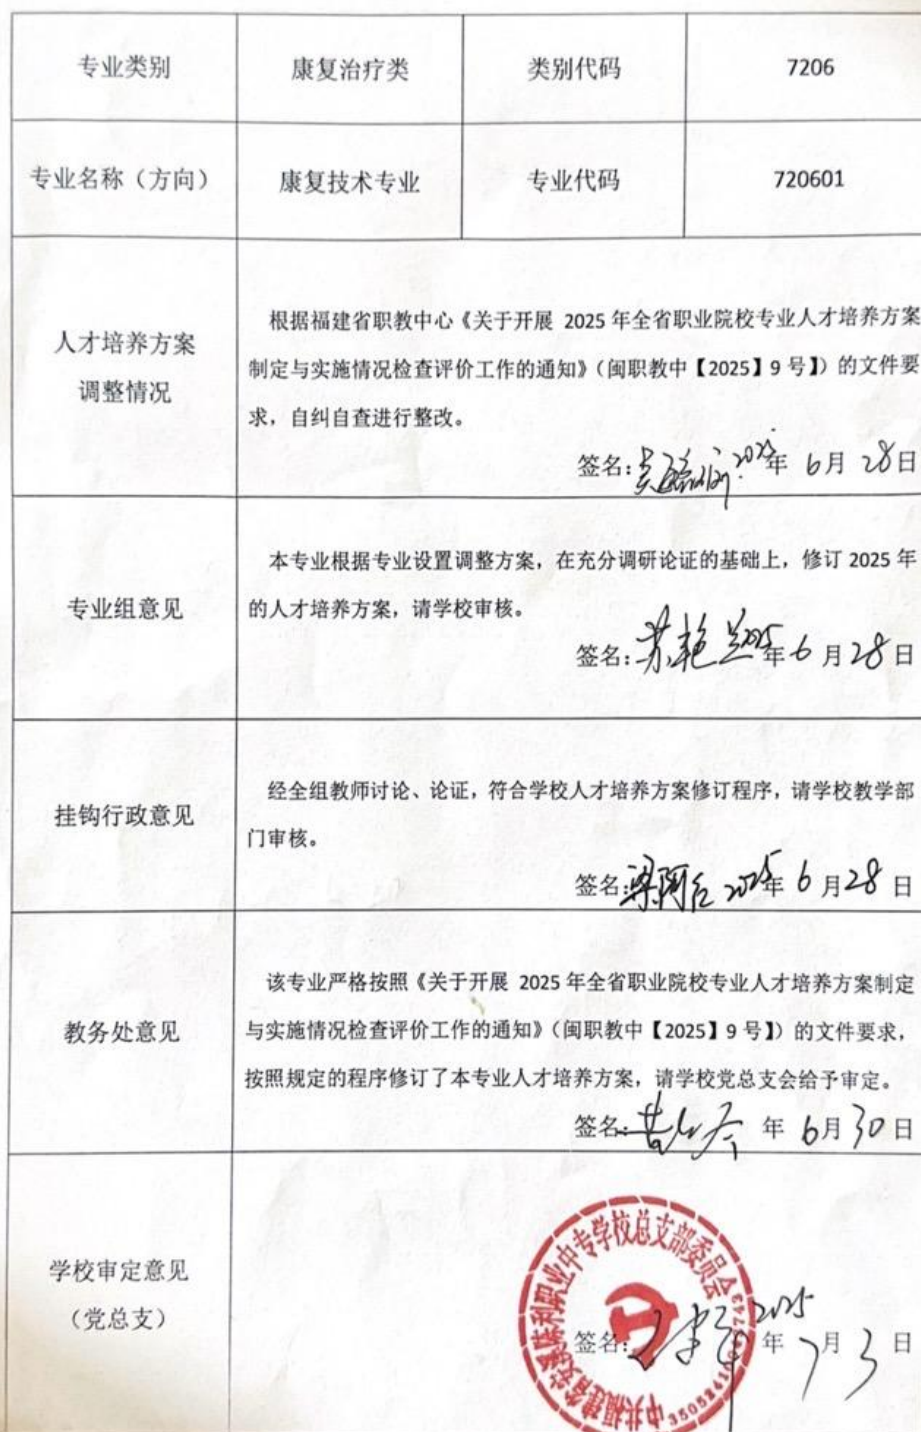 专业类别 康复治疗类 类别代码 7206
专业名称（方向） 康复技术专业 专业代码 720601
人才培养方案
调整情况
根据福建省职教中心《关于开展 2025 年全省职业院校专业人才培养方案
制定与实施情况检查评价工作的通知》（闽职教中【2025】9 号】）的文件要
求，自纠自查进行整改。
签名: 2025年 6月 28日
专业组意见
本专业根据专业设置调整方案，在充分调研论证的基础上，修订 2025 年
的人才培养方案，请学校审核。
签名: 苏艳兰 2025年 6月 28日
挂钩行政意见
经全组教师讨论、论证，符合学校人才培养方案修订程序，请学校教学部
门审核。
签名: 梁阿 2025年 6月 28日
教务处意见
该专业严格按照《关于开展 2025 年全省职业院校专业人才培养方案制定
与实施情况检查评价工作的通知》（闽职教中【2025】9 号】）的文件要求，
按照规定的程序修订了本专业人才培养方案，请学校党总支会给予审定。
签名: 年 6月 30日
学校审定意见
（党总支）
中共福建省安溪陈利职业中专学校总支部委员会
签名: 2025年 7月 3日